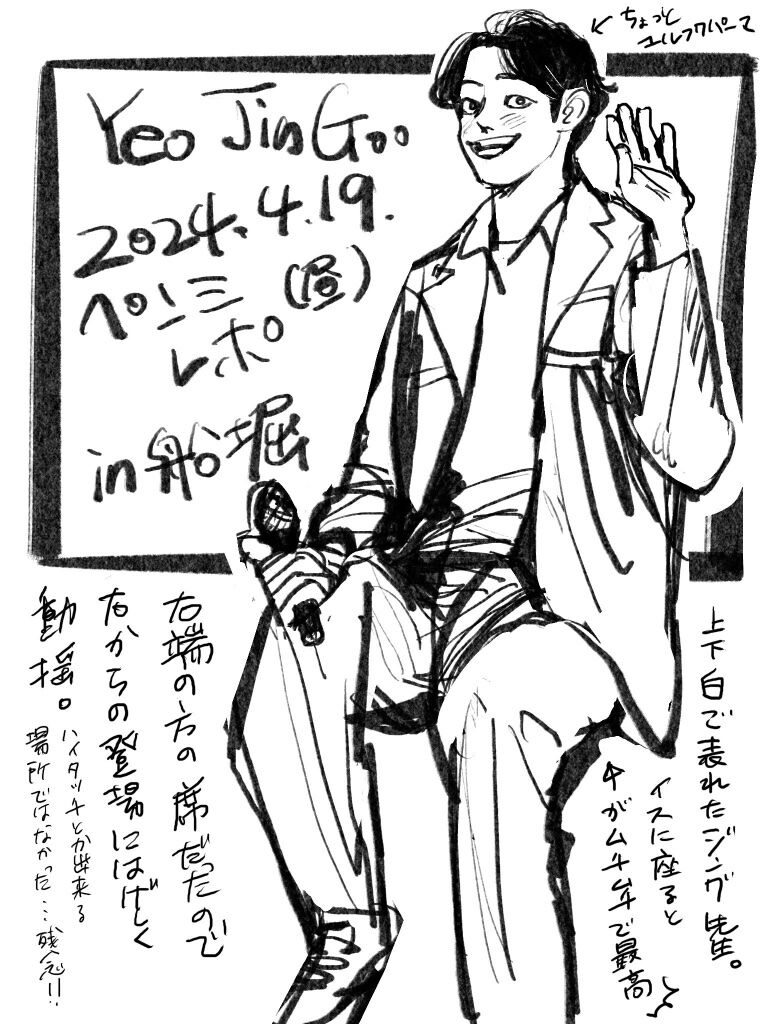 ちょっと
エルフクパーマ
Yeo Jin Goo
2024.4.19.
ペンミ(昼)
レポ
in 船堀
上下白で表れたジング先生。
イスに座ると
がムチムチで最高
右端の方の席だったので
右からの登場にはげしく
動揺。
ハイタッチとか出来る
場所ではなかった…残念!!